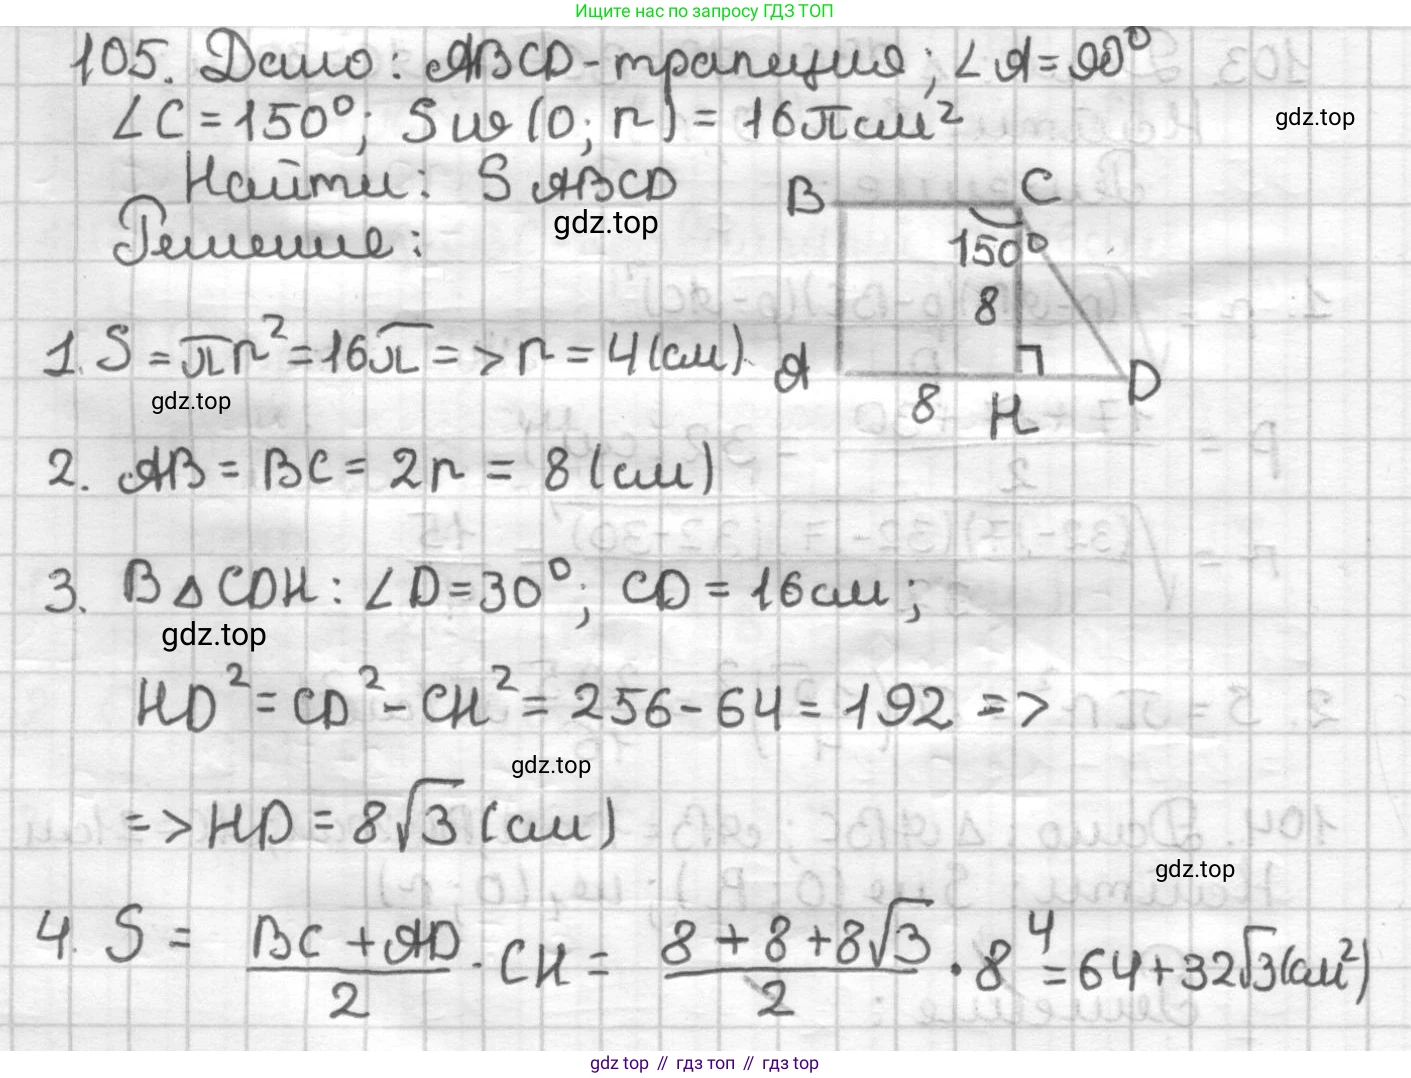 Ищите нас по запросу ГДЗ ТОП
105. Дано: ABCD-трапеция; ∠A=90°
∠C=150°; S ш (O; r) = 16π см²
gdz.top
Найти: S ABCD
gdz.top
Решение:
B C
150°
8
A 8 H D
1. S = πr² = 16π => r = 4 (см)
gdz.top
2. AB = BC = 2r = 8 (см)
3. В △ CDH: ∠D=30°; CD = 16 см;
gdz.top
HD² = CD² - CH² = 256 - 64 = 192 =>
gdz.top
=> HD = 8√3 (см)
gdz.top
4. S = (BC + AD)/2 · CH = (8 + 8 + 8√3)/2 · 8 4 = 64 + 32√3 (см²)
gdz.top // гдз топ // gdz top